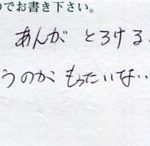 でお書き下さい。
あんが とろける
うのが もったいない…